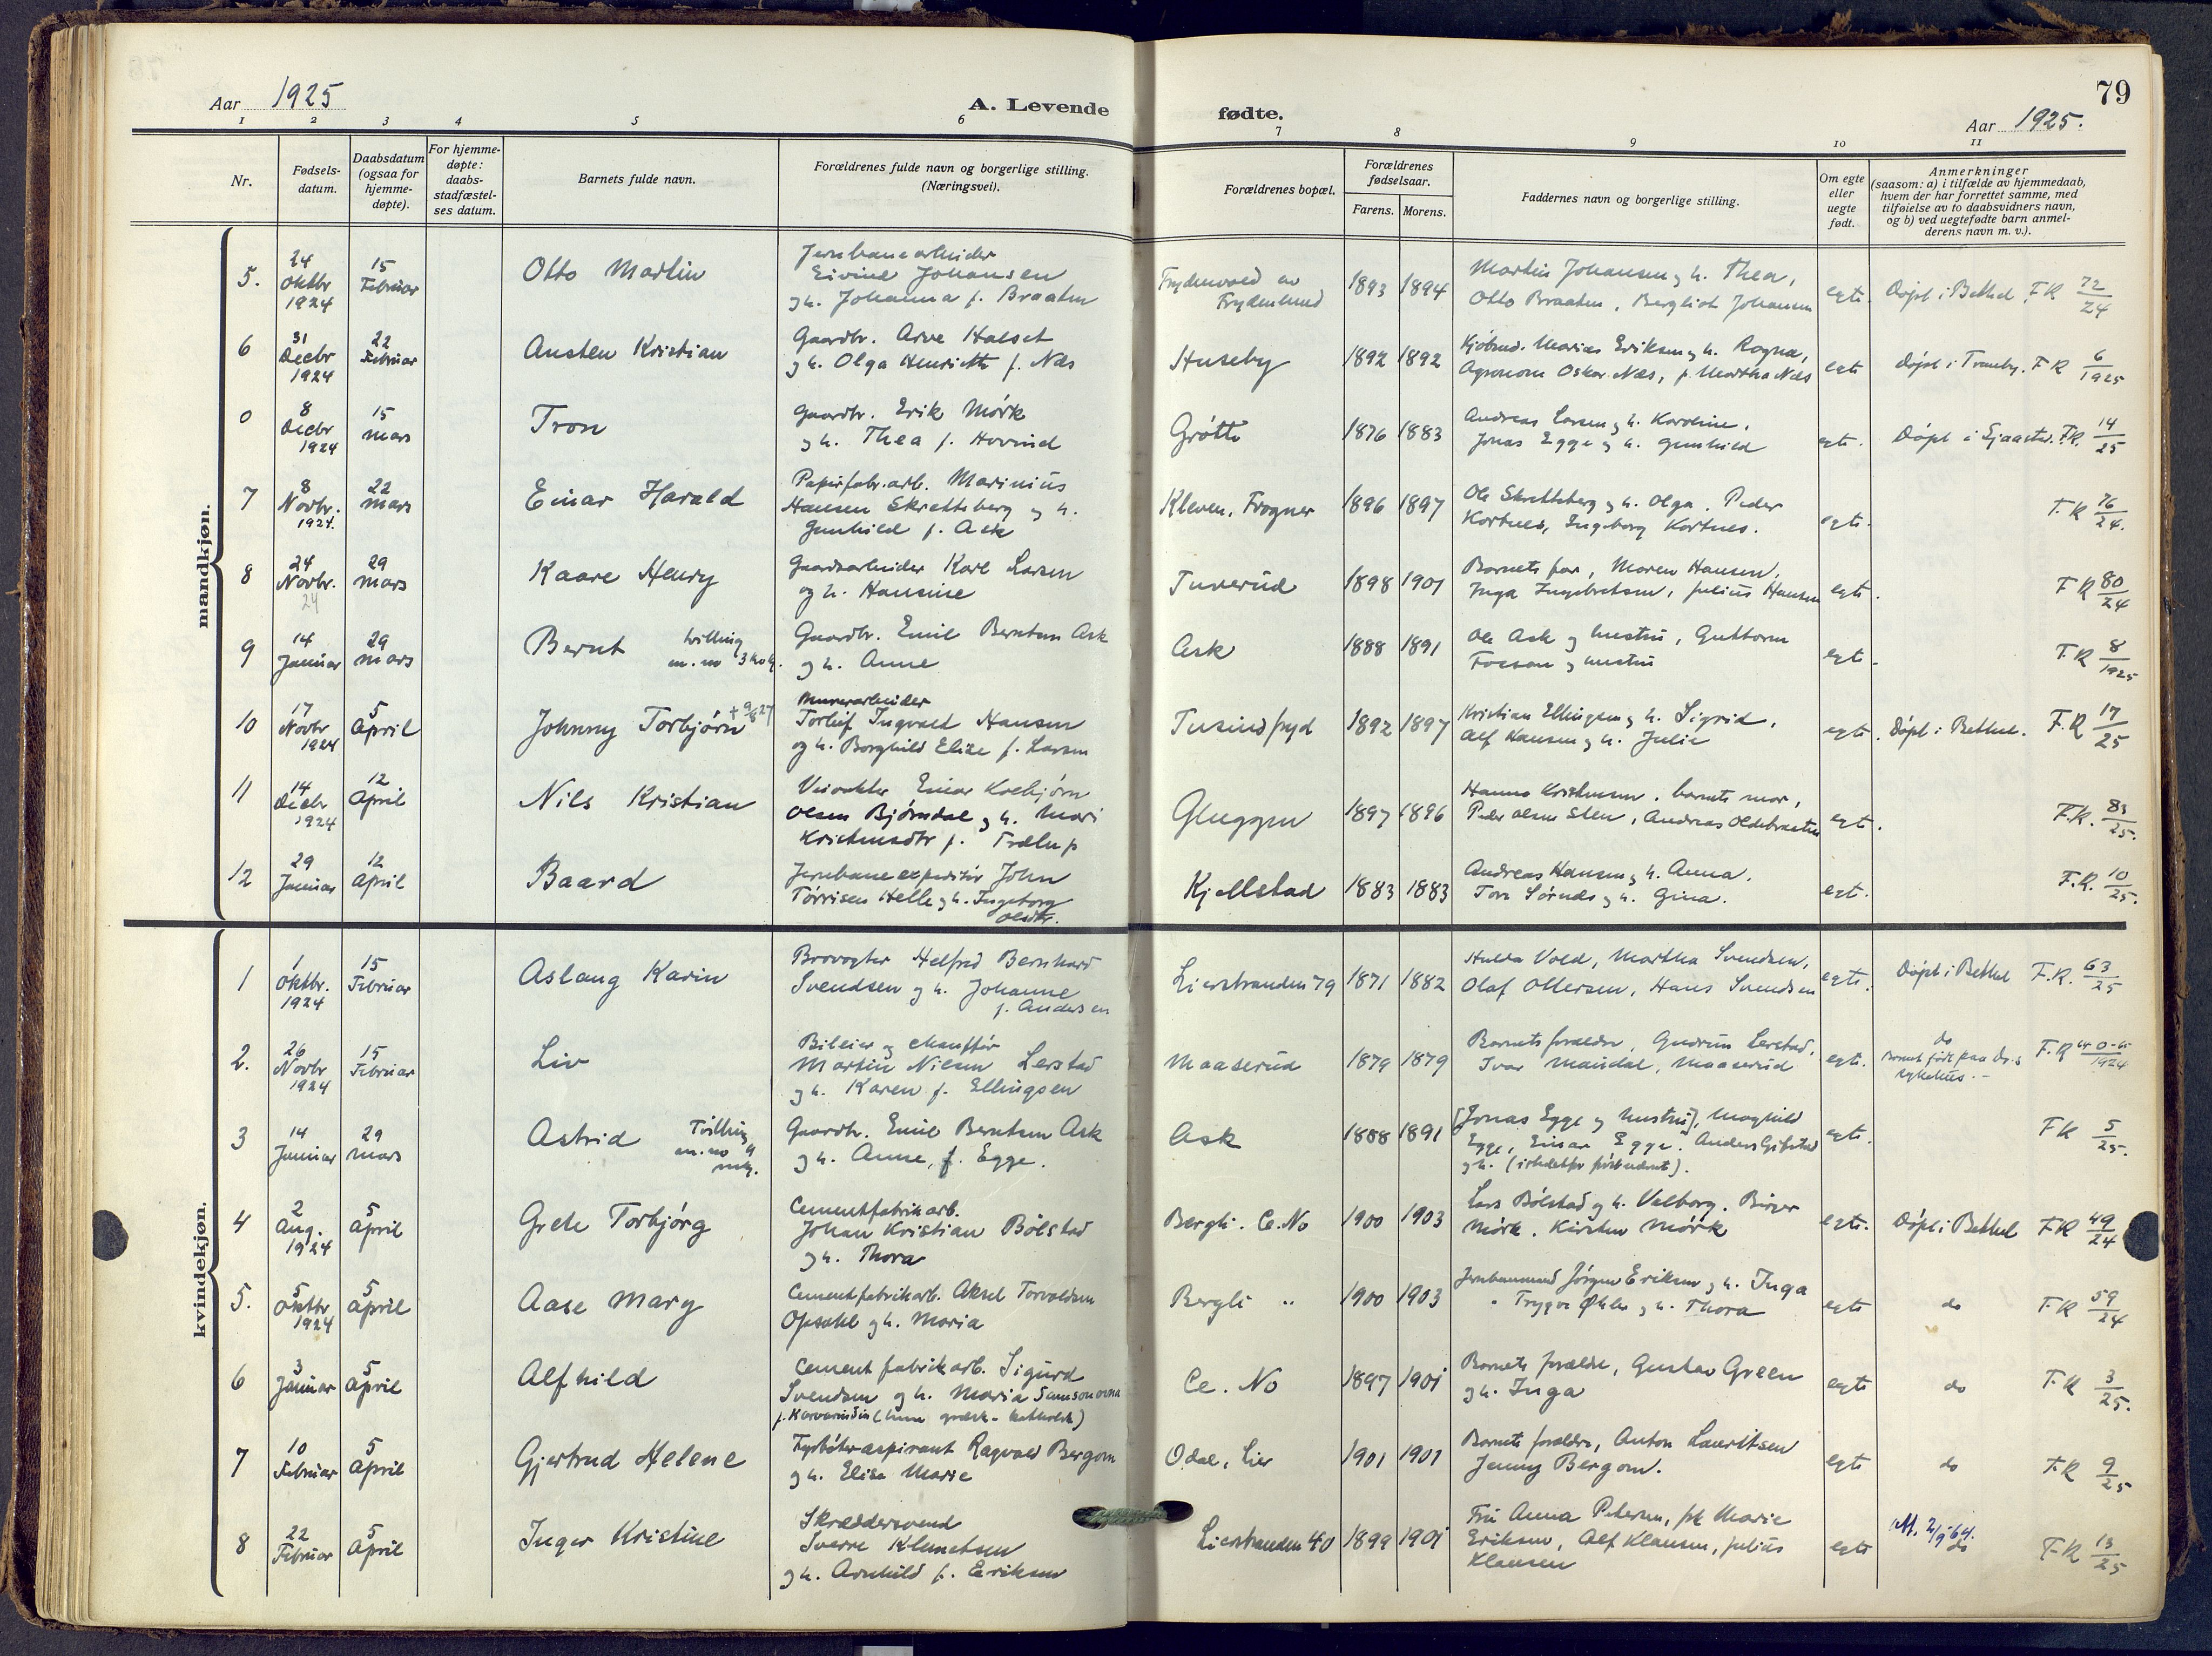 Aar 1925
A. Levende
fødte.
79
Aar 1925.
1 2 3 4 5 6 7 8 9 10 11
Nr.
Fødsels-
datum.
Daabsdatum
(ogsaa for
hjemme-
døpte).
For hjemme-
døpte:
daabs-
stadfæstel-
ses datum.
Barnets fulde navn.
Forældrenes fulde navn og borgerlige stilling.
(Næringsvei).
Forældrenes bopæl.
Forældrenes
fødselsaar.
Farens. Morens.
Faddernes navn og borgerlige stilling.
Om egte
eller
uegte
født.
Anmerkninger
(saasom: a) i tilfælde av hjemmedaab,
hvem der har forrettet samme, med
tilføielse av to daabsvidners navn,
og b) ved uegtefødte barn anmel-
derens navn m. v.).
mandkjøn.
5. 24 Oktbr 1924 15 Februar Otto Martin
Jernbanearbeider
Eivind Johansen
og h. Johanna f. Braaten
Frydenvold av
Frydenlund
1893 1894
Martin Johansen og h. Thea,
Otto Braaten, Bergliot Johansen
egte. Døpt i Bethel F.R 72/24
6 31 Decbr 1924 22 Februar Austen Kristian
Gaardbr. Arve Halset
og h. Olga Henriette f. Næs
Huseby 1892 1892
Kjøbmd. Marius Eriksen og h. Ragna,
Agronom Oskar Næs, f. Martha Næs
egte Døpt i Tranby. F R 6/1925
0 8 Decbr 1924 15 mars Tron
Gaardbr. Erik Mørk
og h. Thea f. Hovind
Grøtte 1876 1883
Andreas Larsen og h. Karoline,
Jonas Egge og h. Gunhild
egte. Døpt i Sjaastad. F.R. 14/25
7 8 Novbr. 1924. 22 mars Einar Harald
Papirfabr.arb. Marinius
Hansen Skretteberg og h.
Gunhild f. Ask
Kleven, Frogner 1896 1897
Ole Skretteberg og h. Olga. Peder
Kortnes, Ingeborg Kortnes.
egte. F.R 76/24.
8 24 Novbr. 24 29 mars Kaare Henry
Gaardsarbeider Karl Larsen
og h. Hansine
Tuverud 1898 1901
Barnets far, Maren Hansen,
Inga Ingebretsen, Julius Hansen
egte. F R 80/24
9 14 Januar 29 mars Bernt tvilling
m. no 3
Gaardbr. Emil Berntsen Ask
og h. Anne
Ask 1888 1891
Ole Ask og hustru, Guttorm
Fossan og hustru
egte. F.R 8/1925
10 17 Novbr 1924 5 April Johnny Torbjørn
Murerarbeider
Torleif Ingvald Hansen
og h. Borghild Elise f. Larsen
Tusindfryd 1892 1897
Kristian Ellingsen og h. Sigrid,
Alf Hansen og h. Julie
egte. Døpt i Bethel. F.R 17/25
11 14 Decbr 1924 12 April Nils Kristian
Veivokter Einar
Olsen Bjørndal og h. Mari
Kristensdtr f.
Gluggen 1897 1896
Hanna Kristensen, barnets mor,
Peder Olsen Sten, Andreas Oldebraaten
egte. F.R. 83/25.
12 29 Januar 12 April Baard
Jernbaneexpeditør John
Tørrisen Helle og h. Ingeborg
Olsdtr.
Kjellstad 1883 1883
Andreas Hansen og h. Anna,
Tore Sørnds og h. Gina.
egte. F.R. 10/25.
kvindekjøn.
1 1 Oktbr. 1924 15 Februar Aslaug Karin
Brovogter Helfred Bernhard
Svendsen og h. Johanne
f. Andersen
Lierstranden 79 1871 1882
Hulda Vold, Martha Svendsen,
Olaf Ottersen, Hans Svendsen
egte. Døpt i Bethel F.R. 63/25
2. 26 Novbr 1924 15 Februar Liv
Bileier og chauffør
Martin Nilsen Lerstad
og h. Karen f. Ellingsen
Maaserud 1879 1879
Barnets forældre, Gudrun Lerstad,
Ivar Mandal, Maaserud
egte. do
Barnet født paa Dr.s
sykehus. F.R
3 14 Januar 29 mars Astrid Tvilling
m. no 9
Gaardbr. Emil Berntsen Ask
og h. Anne, f. Egge.
Ask 1888 1891
[Jonas Egge og hustru], Maghild
Egge, Einar Egge. Anders Gifstad
og h. (istedetfor førstnævnt).
egte. F R 5/25.
4 2 Aug. 1924 5 April Grete Torbjørg
Cementfabrikarb.
Johan Kristian Bølstad
og h. Thora
Bergli. Ce. No 1900 1903
Lars Bølstad og h. Valborg. Birger
Mørk. Kirsten Mørk
egte. Døpt i Bethel F R 49/24
5. 5 Oktbr 1924 5 April Aase Mary
Cementfabrikarb. Aksel Torvaldsen
Opsahl og h. Maria
Bergli „ 1900 1903
Jernbanemand Jørgen Eriksen og h. Inga
" Trygve Øhler og h. Thora
egte do F.R 59/24
6 3 Januar 5 April Alfhild
Cementfabrikarb. Sigurd
Svendsen og h. Maria Samsonovna
f. (hun græsk-katholsk)
Ce. No 1897 1901
Barnets forældre, Gustav Green
og h. Inga
egte do F.R 3/25.
7 10 Februar 5 April Gjertrud Helene
Fyrbøteraspirant Ragvald Bergom
og h. Elise Marie
Odal, Lier 1901 1901
Barnets forældre, Anton Lauritsen
Jenny Bergom.
egte do F.R 9/25
8 22 Februar 5 April Inger Kristine
Skræddersvend
Sverre Klemetsen
og h. Arnhild f. Eriksen
Lierstranden 40 1899 1901
Fru Anna Petersen, frk Marie
Eriksen, Alf Klausen, Julius
Klausen
egte Att. 2/9-64.
do F.R 13/25